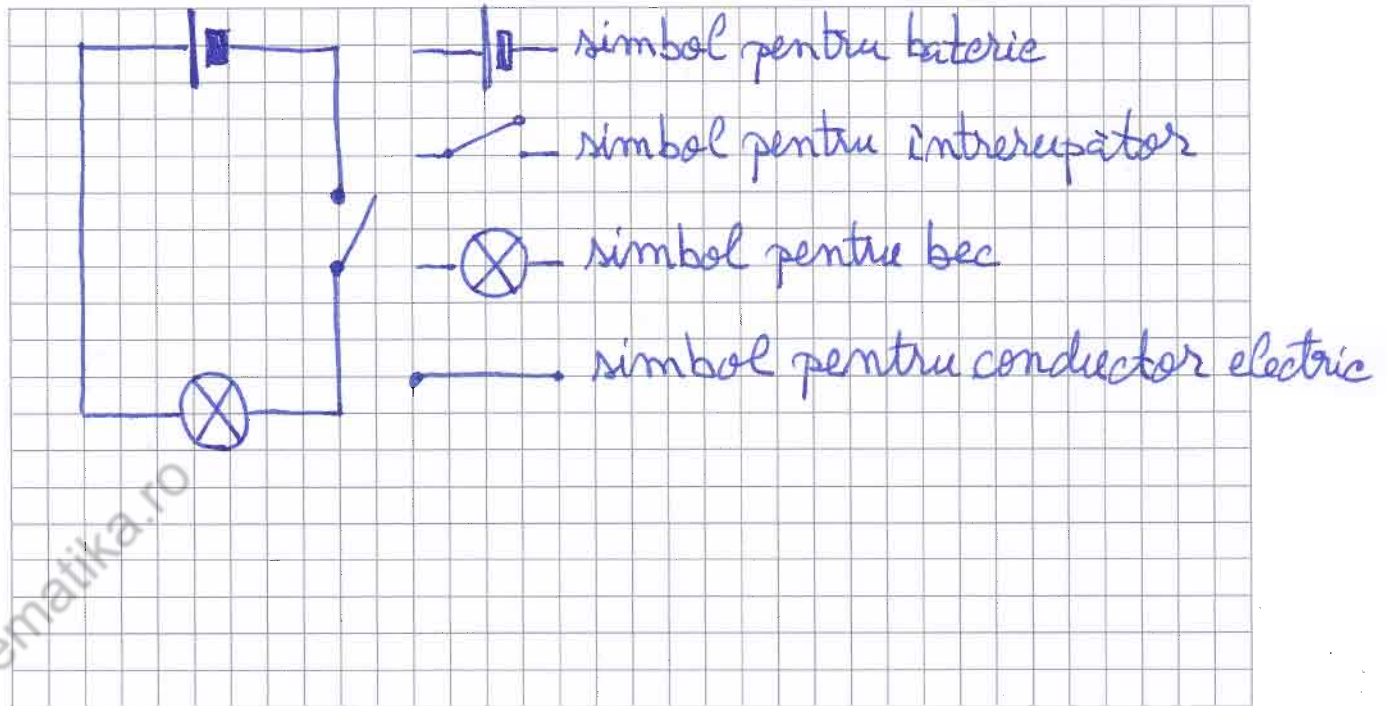 simbol pentru baterie
simbol pentru întrerupător
simbol pentru bec
simbol pentru conductor electric
ematika.ro